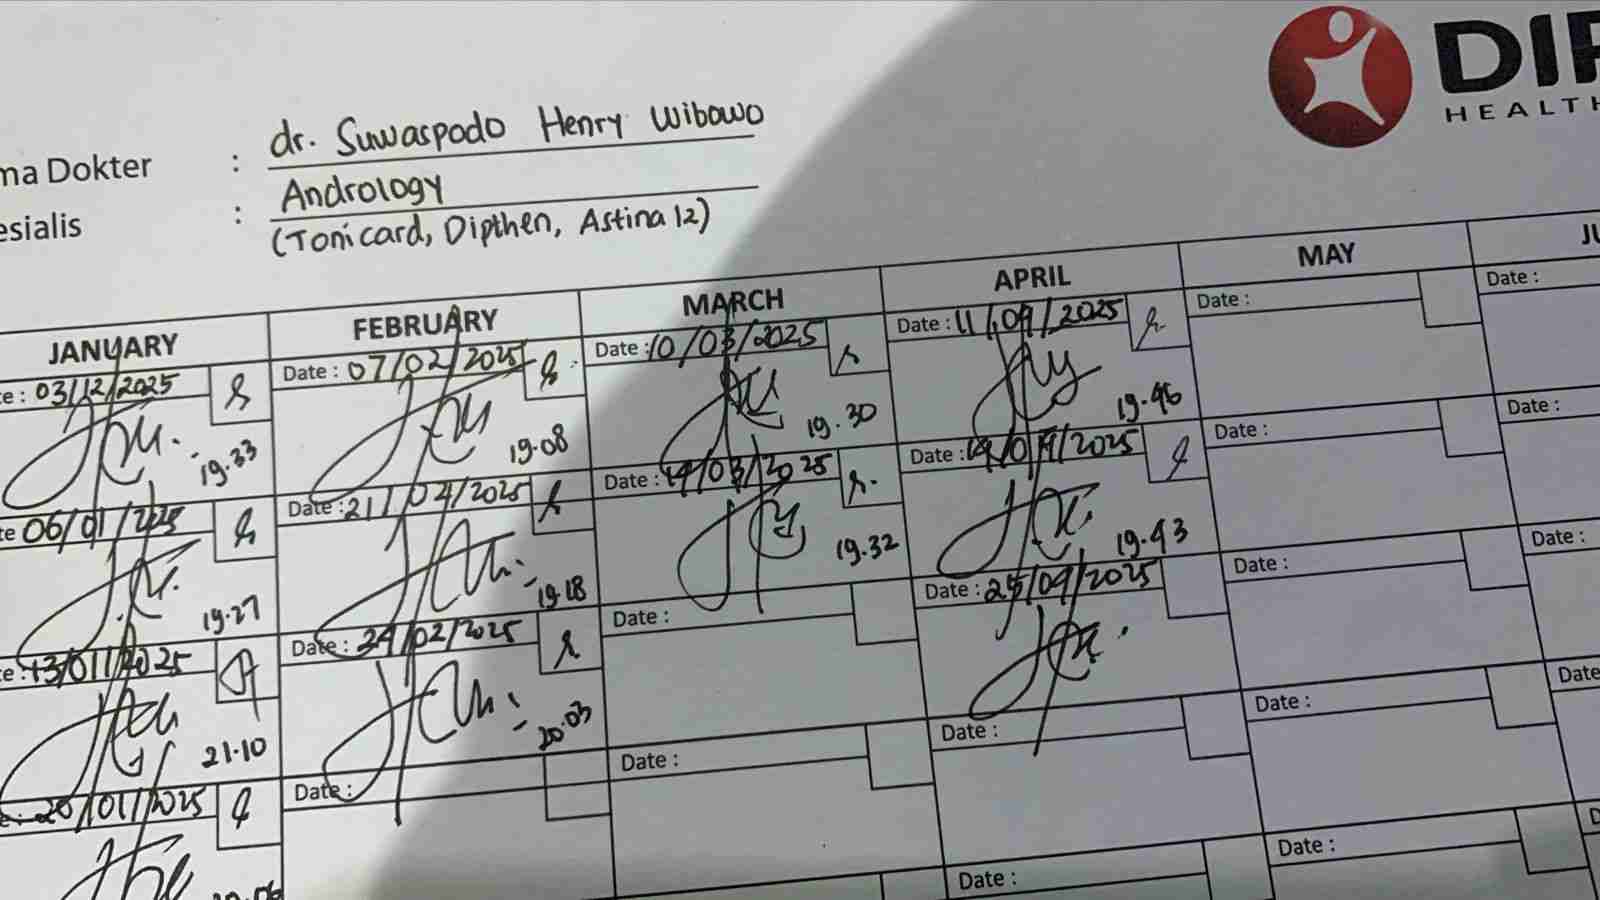 DIP
HEALTH
ma Dokter : dr. Suwaspodo Henry Wibowo
esialis : Andrology
(Tonicard, Dipthen, Astina 12)
JANUARY FEBRUARY MARCH APRIL MAY JU
te : 03/12/2025 Date : 07/02/2025 Date : 10/03/2025 Date : 11/09/2025 Date : Date :
19.33 19.08 19.30 19.46
te 06/01/2025 Date : 21/02/2025 Date : 14/03/2025 Date : 14/09/2025 Date : Date :
19.27 19.18 19.32 19.43
te : 13/01/2025 Date : 24/02/2025 Date : Date : 25/09/2025 Date : Date :
21.10 20.03
e : 20/01/2025 Date : Date : Date : Date : Date
Date : Date :